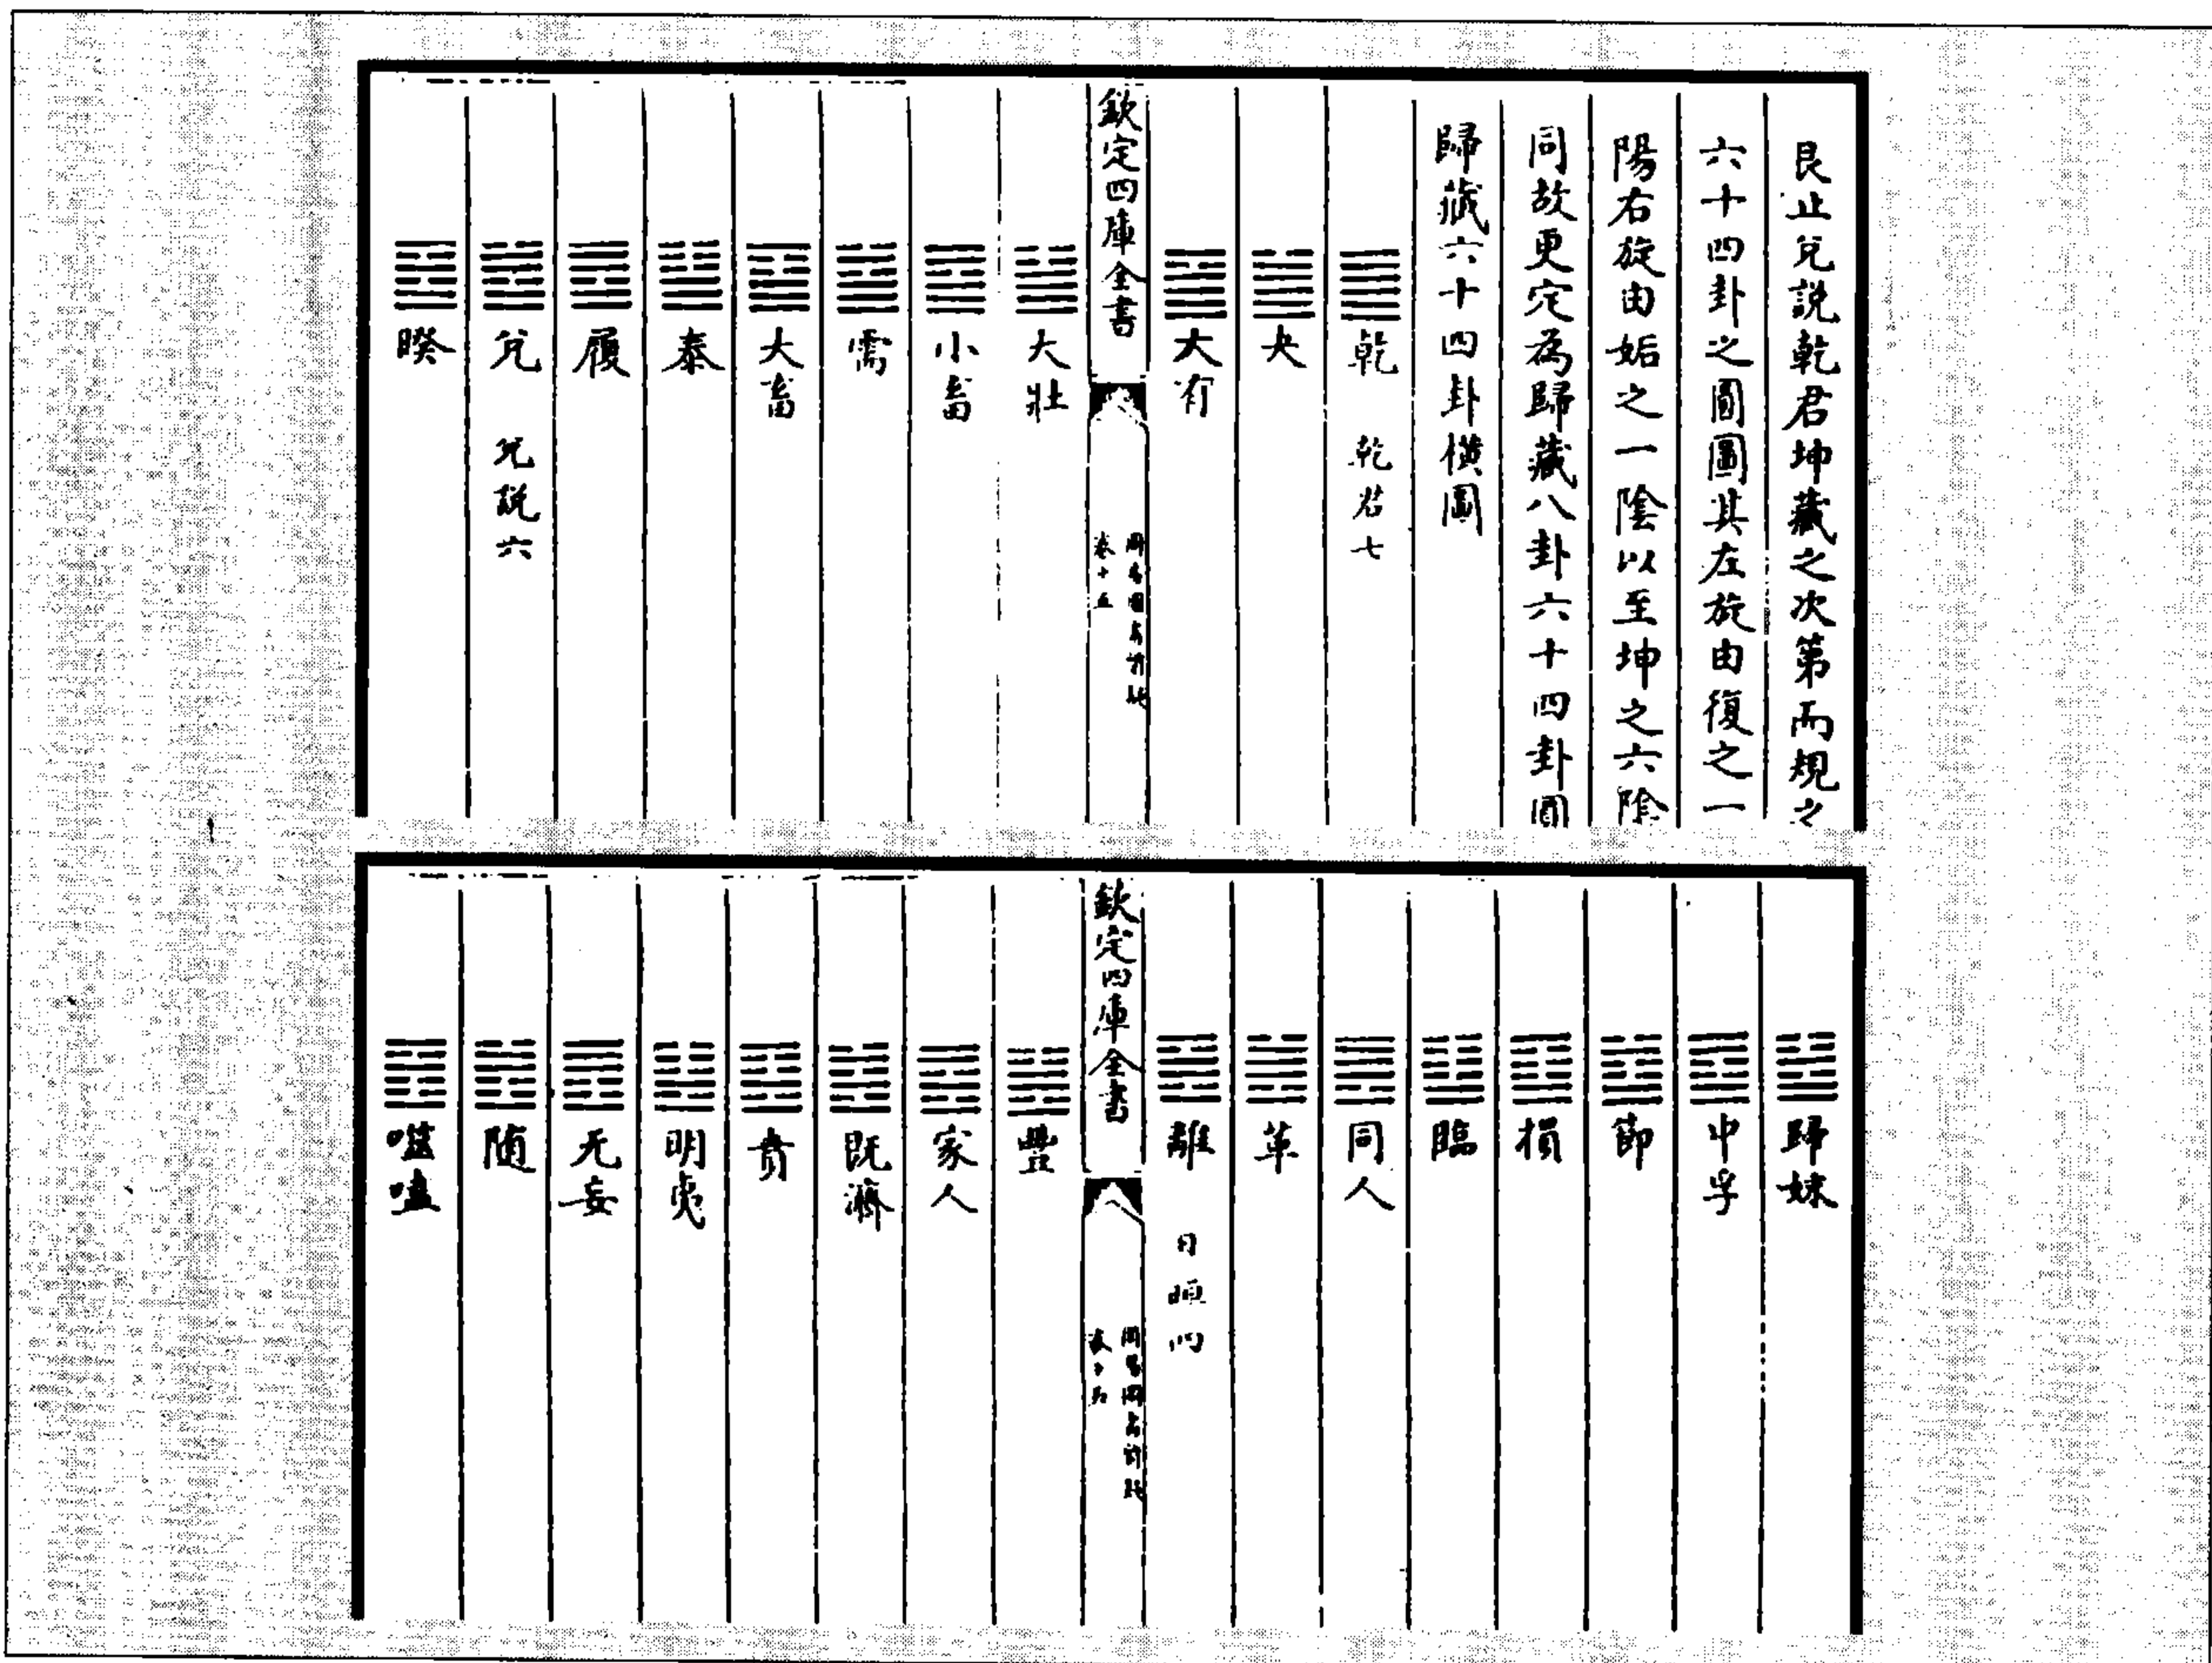 艮止兌説乾君坤藏之次第而規之
六十四卦之圓圖其左旋由復之一
陽右旋由姤之一陰以至坤之六陰
同故更定為歸藏八卦六十四卦圓
歸藏六十四卦橫圖
乾 乾君七
夬
大有
欽定四庫全書
周易圖書訂疑
卷十五
大壯
小畜
需
大畜
泰
履
兌 兌説六
睽
歸妹
中孚
節
損
臨
同人
革
離 日烜四
欽定四庫全書
卷十五
豐
家人
既濟
賁
明夷
无妄
随
噬嗑